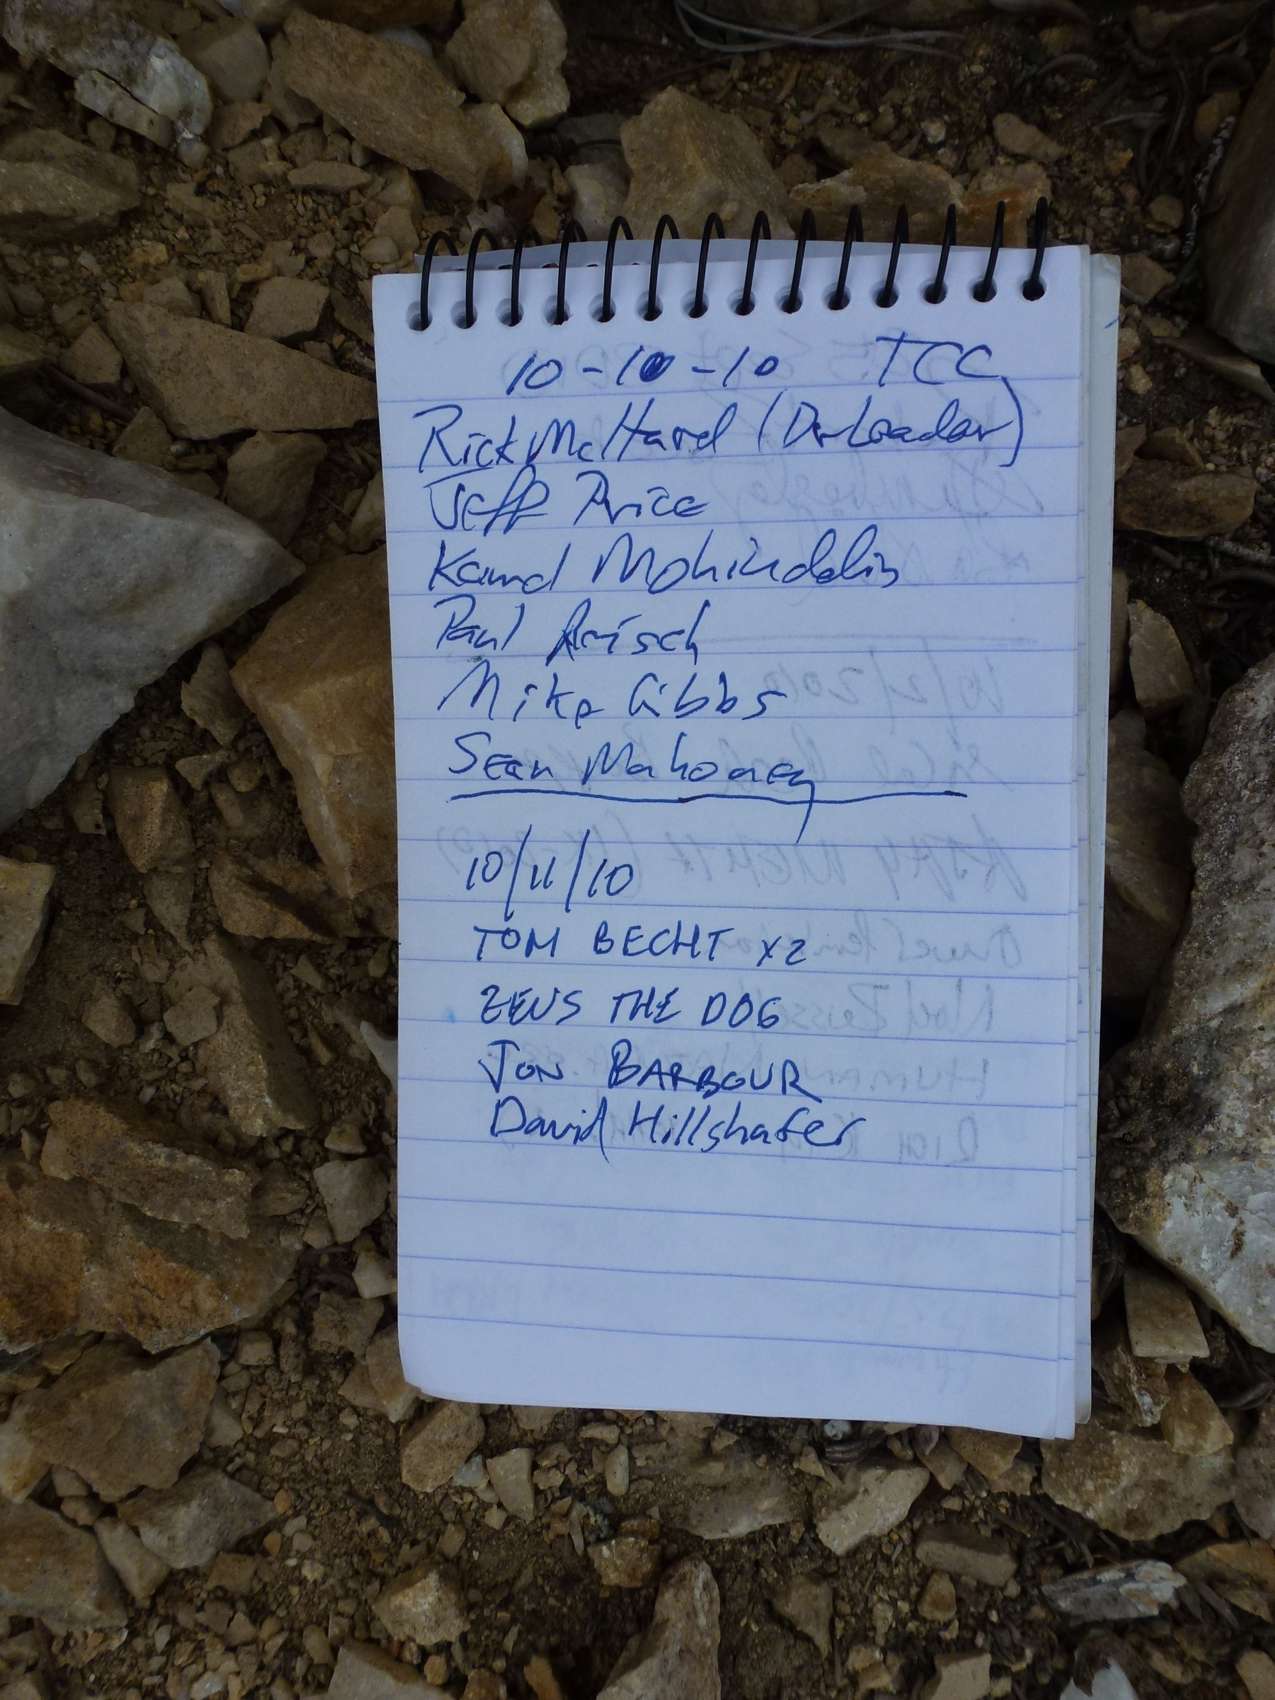 10-10-10 TCC
Rick McHard (Dr Leader)
Jeff Price
Kamal Mohinddin
Paul
Mike Gibbs
Sean Mahoney
10/11/10
TOM BECHT X2
ZEUS THE DOG
JON BARBOUR
David Hillshafer